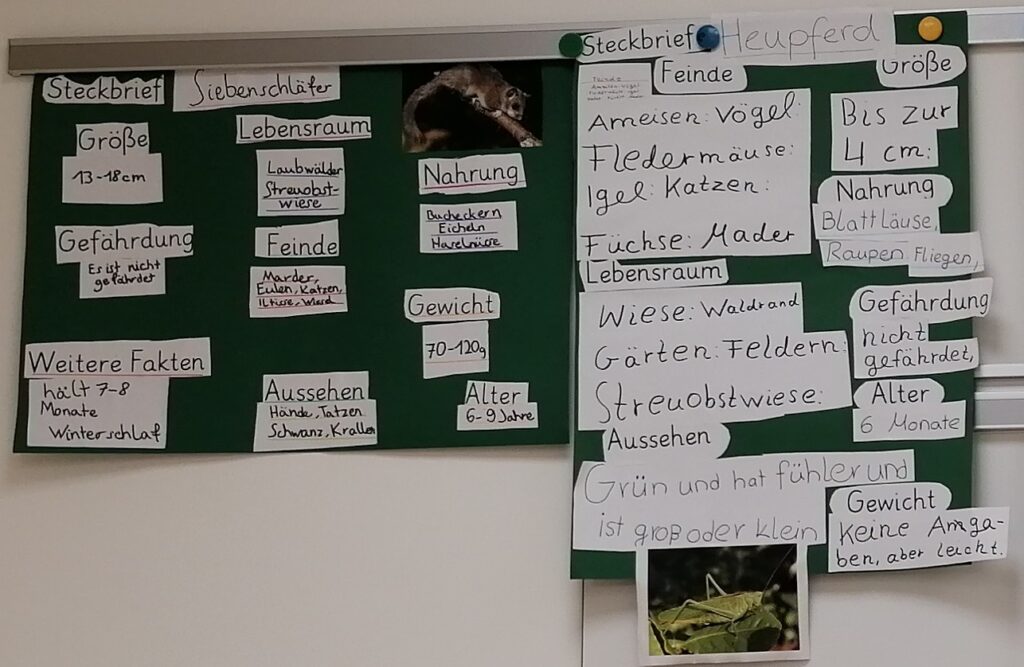 Steckbrief
Siebenschläfer
Größe
13-18cm
Lebensraum
Laubwälder
Streuobst-
wiese
Nahrung
Bucheckern
Eicheln
Haselnüsse
Gefährdung
Es ist nicht
gefährdet
Feinde
Marder,
Eulen, Katzen,
Iltisse, Wiesel
Gewicht
70-120g
Weitere Fakten
hält 7-8
Monate
Winterschlaf
Aussehen
Hände, Tatzen
Schwanz, Krallen
Alter
6-9 Jahre
Steckbrief Heupferd
Feinde
Ameisen: Vögel:
Fledermäuse:
Igel: Katzen:
Füchse: Mader
Größe
Bis zur
4 cm:
Nahrung
Blattläuse,
Raupen Fliegen,
Lebensraum
Wiese: Waldrand
Gärten: Feldern:
Streuobstwiese:
Gefährdung
nicht
gefährdet,
Alter
6 Monate
Aussehen
Grün und hat fühler und
ist groß oder klein
Gewicht
Keine Amga-
ben, aber leicht.